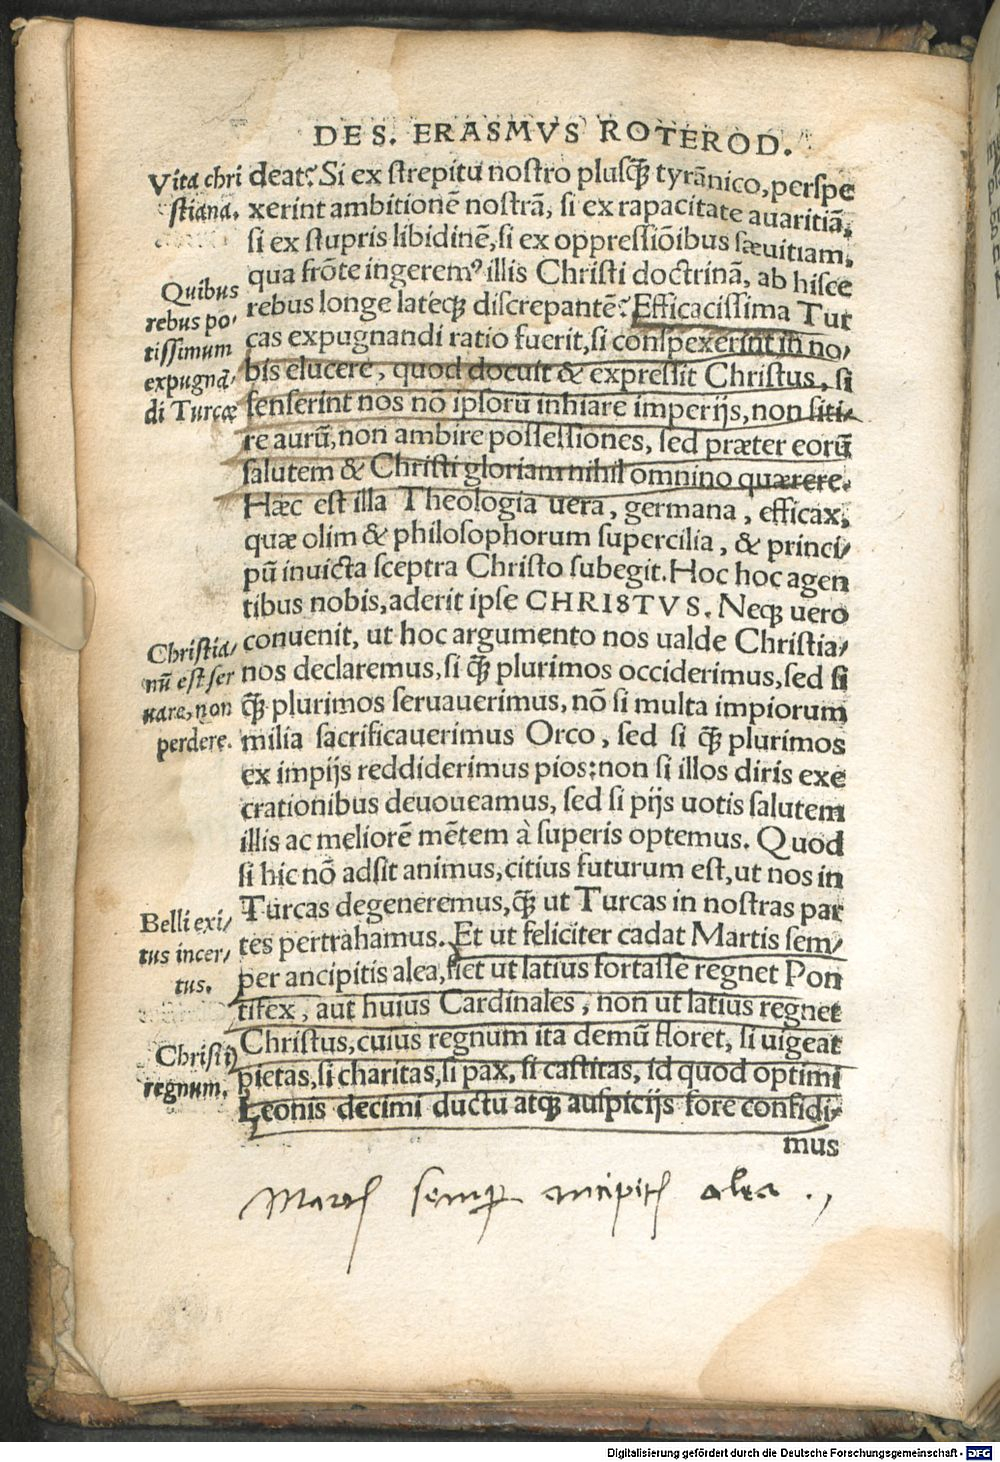 DES. ERASMVS ROTEROD.
Vita chri
stiana.
deat? Si ex strepitu nostro plusq̃ tyrãnico, perspe
xerint ambitionẽ nostrã, si ex rapacitate auaritiã,
si ex stupris libidinẽ, si ex oppressiõibus sæuitiam,
qua frõte ingerem⁹ illis Christi doctrinã, ab hisce
Quibus
rebus po-
tissimum
expugnã-
di Turcæ
rebus longe lateq; discrepantẽ? Efficacissima Tur
cas expugnandi ratio fuerit, si conspexerint in no-
bis elucere, quod docuit & expressit Christus, si
senserint nos nõ ipsorũ inhiare imperijs, non siti-
re aurũ, non ambire possessiones, sed præter eorũ
salutem & Christi gloriam nihil omnino quærere.
Hæc est illa Theologia uera, germana, efficax,
quæ olim & philosophorum supercilia, & princi-
pũ inuicta sceptra Christo subegit. Hoc hoc agen
tibus nobis, aderit ipse CHRISTVS. Neq; uero
Christia-
nũ est ser
uare, non
perdere.
conuenit, ut hoc argumento nos ualde Christia-
nos declaremus, si q̃ plurimos occiderimus, sed si
q̃ plurimos seruauerimus, nõ si multa impiorum
milia sacrificauerimus Orco, sed si q̃ plurimos
ex impijs reddiderimus pios: non si illos diris exe
crationibus deuoueamus, sed si pijs uotis salutem
illis ac meliorẽ mẽtem à superis optemus. Quod
si hic nõ adsit animus, citius futurum est, ut nos in
Turcas degeneremus, q̃ ut Turcas in nostras par
Belli exi-
tus incer-
tus.
tes pertrahamus. Et ut feliciter cadat Martis sem-
per ancipitis alea, fiet ut latius fortasse regnet Pon
tifex, aut huius Cardinales, non ut latius regnet
Christi
regnum.
Christus, cuius regnum ita demũ floret, si uigeat
pietas, si charitas, si pax, si castitas, id quod optimi
Leonis decimi ductu atq; auspicijs fore confidi-
mus
Martis semper ancipitis alea .,
Digitalisierung gefördert durch die Deutsche Forschungsgemeinschaft - DFG